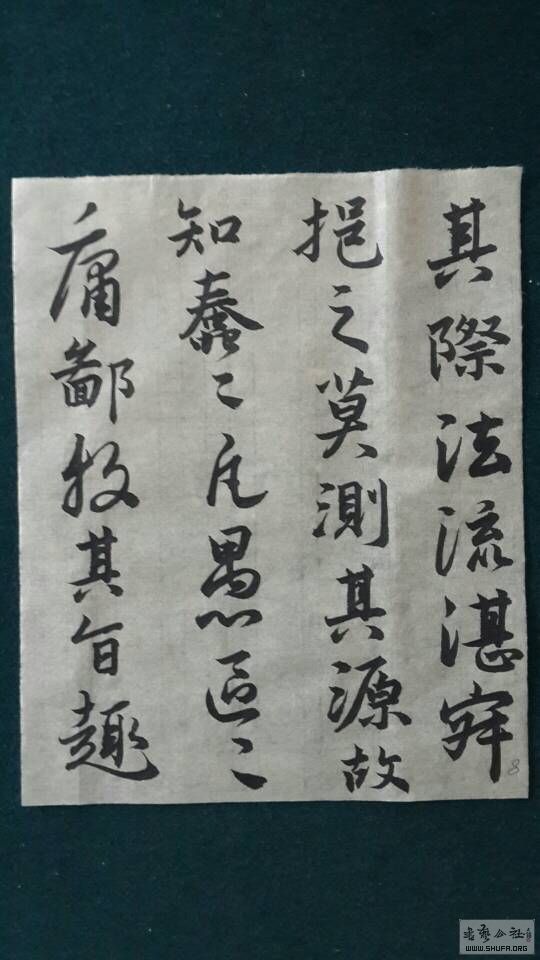 其際法流湛寂
挹之莫測其源故
知蠢〻凡愚區〻
庸鄙投其旨趣
8
WWW.SHUFA.ORG